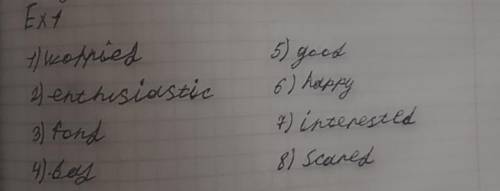 Ex1
1) worries
2) enthusiastic
3) fond
4) bad
5) good
6) happy
7) interested
8) scared